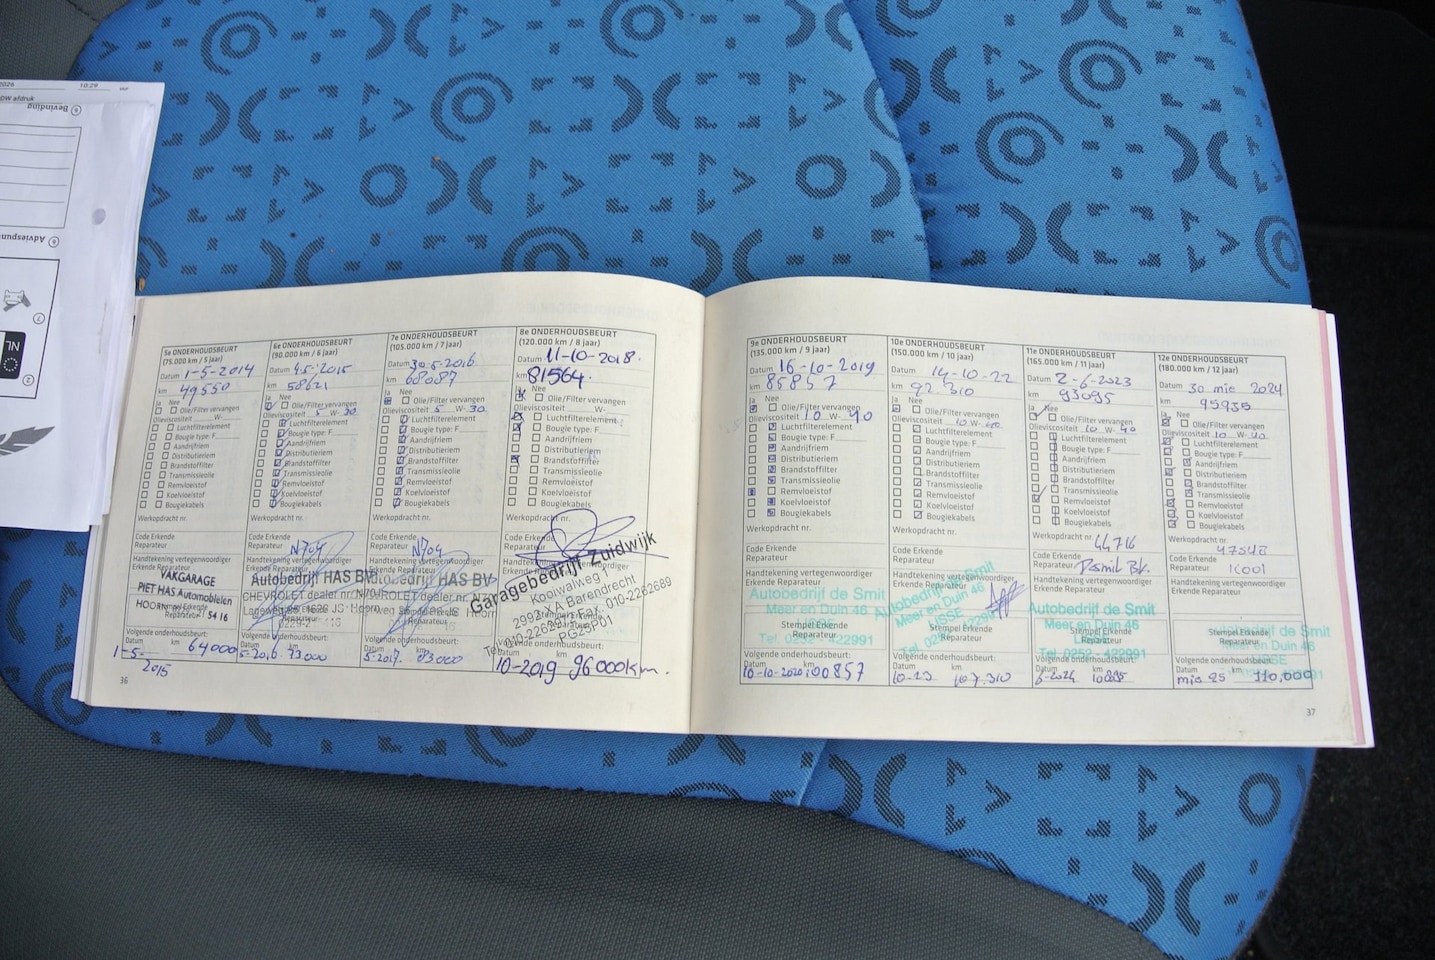 2026 10:29
DW afdruk
6 Bevinding
8 Adviespunt
7
NL
2
5e ONDERHOUDSBEURT
(75.000 km / 5 jaar)
Datum 1-5-2014
km 49550
Ja Nee
Olie/Filter vervangen
Olieviscositeit W-
Luchtfilterelement
Bougie type: F
Aandrijfriem
Distributieriem
Brandstoffilter
Transmissieolie
Remvloeistof
Koelvloeistof
Bougiekabels
Werkopdracht nr.
Code Erkende
Reparateur
Handtekening vertegenwoordiger
Erkende Reparateur
VAKGARAGE
PIET HAS Automobielen
HOORN
54 16
Volgende onderhoudsbeurt:
Datum km
1-5-2015 64000
36
6e ONDERHOUDSBEURT
(90.000 km / 6 jaar)
Datum 4.5.2015
km 58621
Ja Nee
Olie/Filter vervangen
Olieviscositeit 5 W- 30
Luchtfilterelement
Bougie type: F
Aandrijfriem
Distributieriem
Brandstoffilter
Transmissieolie
Remvloeistof
Koelvloeistof
Bougiekabels
Werkopdracht nr.
Code Erkende
Reparateur N704
Handtekening vertegenwoordiger
Erkende Reparateur
Autobedrijf HAS BV
CHEVROLET dealer nr. N70
Volgende onderhoudsbeurt:
Datum km
5-2016 73000
7e ONDERHOUDSBEURT
(105.000 km / 7 jaar)
Datum 30-5-2016
km 68087
Ja Nee
Olie/Filter vervangen
Olieviscositeit 5 W- 30
Luchtfilterelement
Bougie type: F
Aandrijfriem
Distributieriem
Brandstoffilter
Transmissieolie
Remvloeistof
Koelvloeistof
Bougiekabels
Werkopdracht nr.
Code Erkende
Reparateur N704
Handtekening vertegenwoordiger
Erkende Reparateur
Autobedrijf HAS BV
CHEVROLET dealer nr.
Volgende onderhoudsbeurt:
Datum km
5-2017. 83000
8e ONDERHOUDSBEURT
(120.000 km / 8 jaar)
Datum 11-10-2018.
km 81564.
Ja Nee
Olie/Filter vervangen
Olieviscositeit W-
Luchtfilterelement
Bougie type: F
Aandrijfriem
Distributieriem
Brandstoffilter
Transmissieolie
Remvloeistof
Koelvloeistof
Bougiekabels
Werkopdracht nr.
Code Erkende
Reparateur
Handtekening
Erkende
Garagebedrijf Zuidwijk
Kooiwalweg 1
2993 YA Barendrecht
Tel. 010-2262917 Fax. 010-2262689
PG23P01
Datum km
10-2019 96000km.
9e ONDERHOUDSBEURT
(135.000 km / 9 jaar)
Datum 16-10-2019
km 85857
Ja Nee
Olie/Filter vervangen
Olieviscositeit 10 W- 40
Luchtfilterelement
Bougie type: F
Aandrijfriem
Distributieriem
Brandstoffilter
Transmissieolie
Remvloeistof
Koelvloeistof
Bougiekabels
Werkopdracht nr.
Code Erkende
Reparateur
Handtekening vertegenwoordiger
Erkende Reparateur
Autobedrijf de Smit
Meer en Duin 46
Stempel Erkende
Reparateur
Tel. 0252 - 422991
Volgende onderhoudsbeurt:
Datum km
10-10-2020 100857
10e ONDERHOUDSBEURT
(150.000 km / 10 jaar)
Datum 14-10-22
km 92310
Ja Nee
Olie/Filter vervangen
Olieviscositeit 10 W- 40
Luchtfilterelement
Bougie type: F
Aandrijfriem
Distributieriem
Brandstoffilter
Transmissieolie
Remvloeistof
Koelvloeistof
Bougiekabels
Werkopdracht nr.
Code Erkende
Reparateur
Handtekening vertegenwoordiger
Erkende Reparateur
Autobedrijf de Smit
Meer en Duin 46
LISSE
Stempel Erkende
Reparateur
Volgende onderhoudsbeurt:
Datum km
10-23 107.310
11e ONDERHOUDSBEURT
(165.000 km / 11 jaar)
Datum 2-6-2023
km 93095
Ja Nee
Olie/Filter vervangen
Olieviscositeit 10 W- 40
Luchtfilterelement
Bougie type: F
Aandrijfriem
Distributieriem
Brandstoffilter
Transmissieolie
Remvloeistof
Koelvloeistof
Bougiekabels
Werkopdracht nr. 44716
Code Erkende
Reparateur
Handtekening vertegenwoordiger
Erkende Reparateur
Autobedrijf de Smit
Meer en Duin 46
Stempel Erkende
Reparateur
Tel. 0252 - 422991
Volgende onderhoudsbeurt:
Datum km
6-2024
12e ONDERHOUDSBEURT
(180.000 km / 12 jaar)
Datum 30 mei 2024
km 95935
Ja Nee
Olie/Filter vervangen
Olieviscositeit 10 W- 40
Luchtfilterelement
Bougie type: F
Aandrijfriem
Distributieriem
Brandstoffilter
Transmissieolie
Remvloeistof
Koelvloeistof
Bougiekabels
Werkopdracht nr.
Code Erkende
Reparateur
Handtekening vertegenwoordiger
Erkende Reparateur
Autobedrijf de Smit
Meer en Duin 46
Stempel Erkende
Reparateur
Volgende onderhoudsbeurt:
Datum km
mei 25 110,000
37